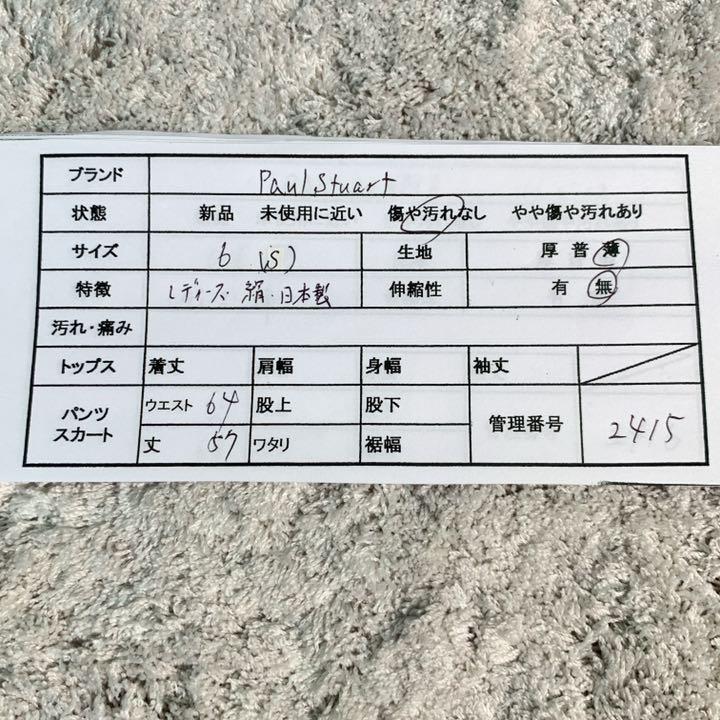 ブランド Paul Stuart
状態 新品 未使用に近い 傷や汚れなし やや傷や汚れあり
サイズ 6 (S) 生地 厚 普 薄
特徴 レディース 絹・日本製 伸縮性 有 無
汚れ・痛み
トップス 着丈 肩幅 身幅 袖丈
パンツ スカート ウエスト 64 股上 股下 管理番号 2415
丈 57 ワタリ 裾幅